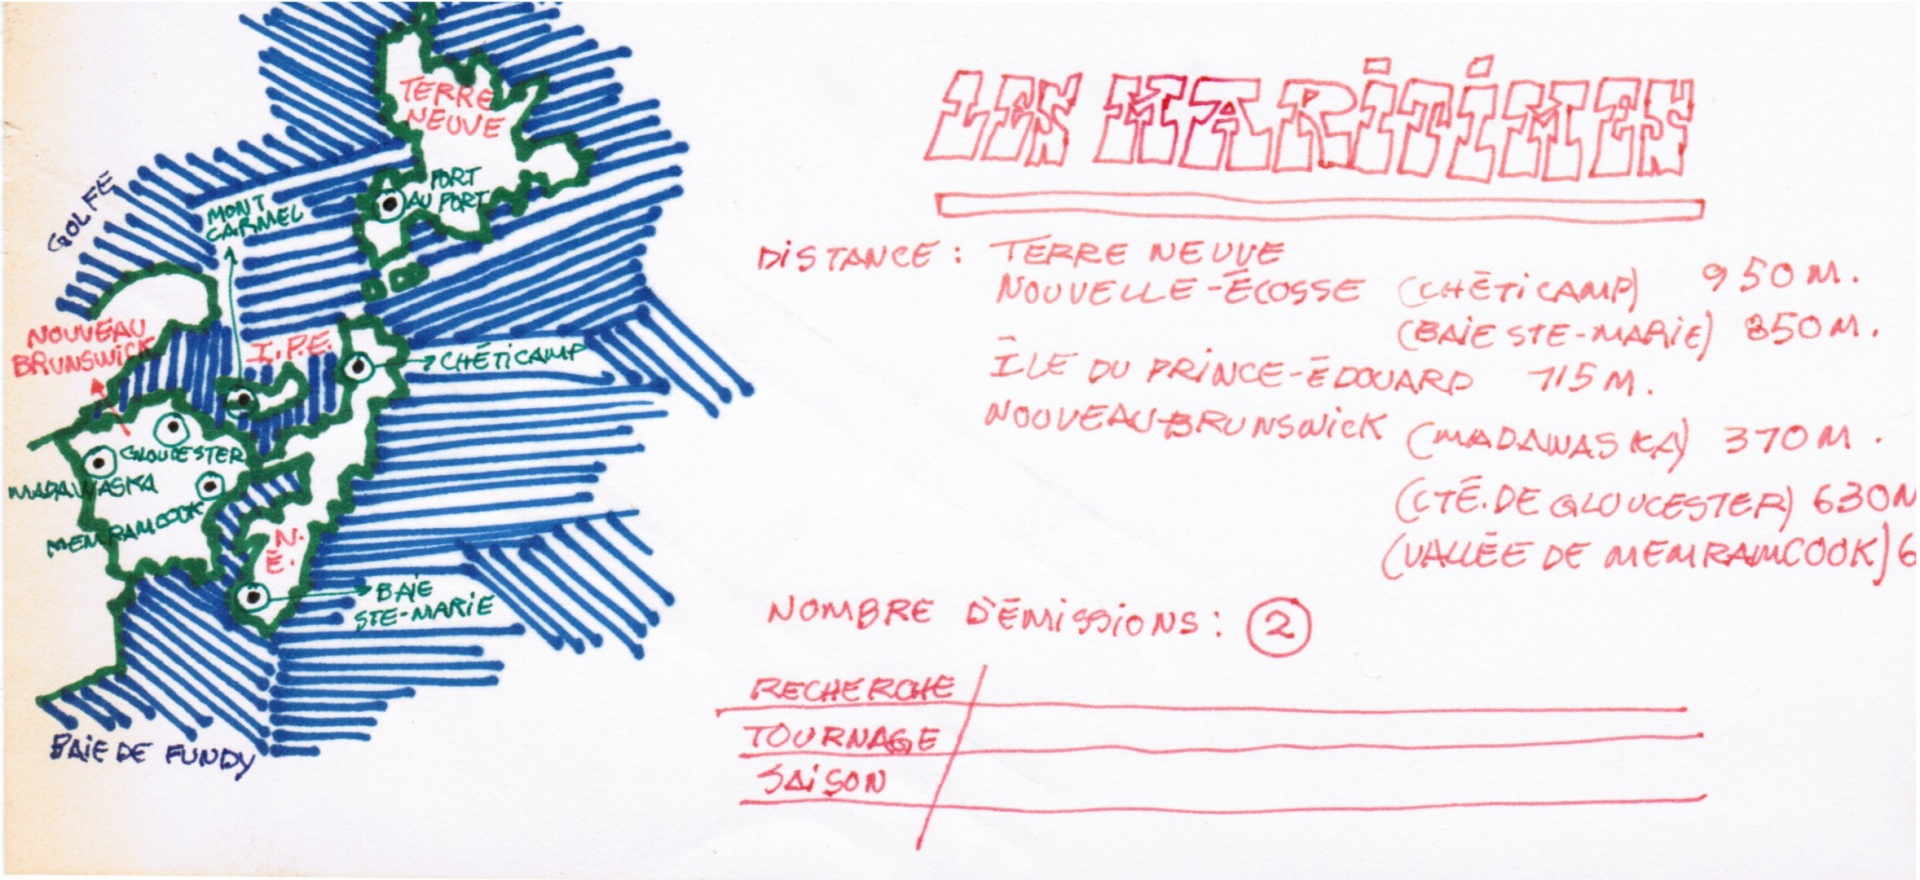 LES MARITIMES
DISTANCE : TERRE NEUVE
NOUVELLE-ÉCOSSE (CHÉTICAMP) 950 M.
(BAIE STE-MARIE) 850 M.
ÎLE DU PRINCE-ÉDOUARD 715 M.
NOUVEAU-BRUNSWICK (MADAWASKA) 370 M.
(CTÉ. DE GLOUCESTER) 630 M
(VALLÉE DE MEMRAMCOOK) 6
NOMBRE D'ÉMISSIONS : 2
RECHERCHE
TOURNAGE
SAISON
TERRE
NEUVE
PORT
AU PORT
GOLFE
MONT
CARMEL
NOUVEAU
BRUNSWICK
I.P.E.
CHÉTICAMP
GLOUCESTER
MADAWASKA
MEMRAMCOOK
N.
É.
BAIE
STE-MARIE
BAIE DE FUNDY